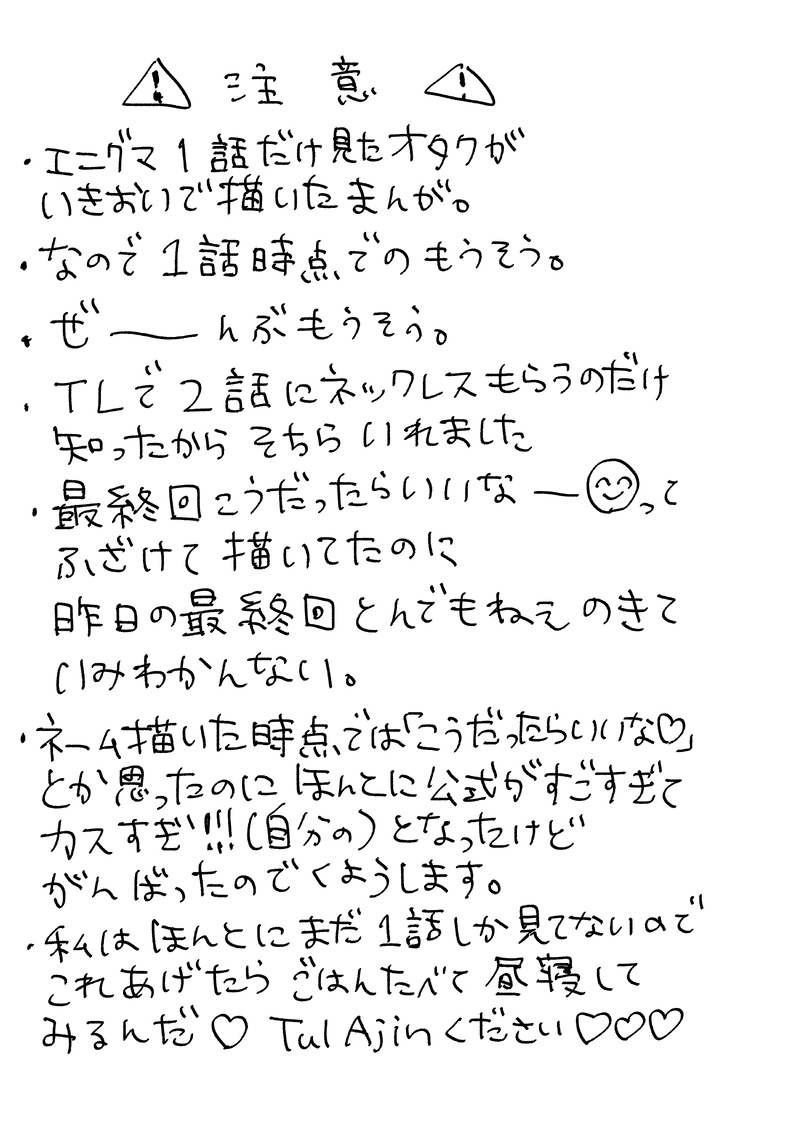 ⚠ 注意 ⚠
・エニグマ1話だけ見たオタクが
いきおいで描いたまんが。
・なので1話時点でのもうそう。
・ぜ──んぶもうそう。
・TLで2話にネックレスもらうのだけ
知ったからそちらいれました
・最終回こうだったらいいなー😊って
ふざけて描いてたのに
昨日の最終回とんでもねえのきて
いみわかんない。
・ネーム描いた時点では「こうだったらいいな♡」
とか思ったのにほんとに公式がすごすぎて
カスすぎ!!!(自分の)となったけど
がんばったのでくようします。
・私はほんとにまだ1話しか見てないので
これあげたらごはんたべて昼寝して
みるんだ♡ Tul Ajinください♡♡♡